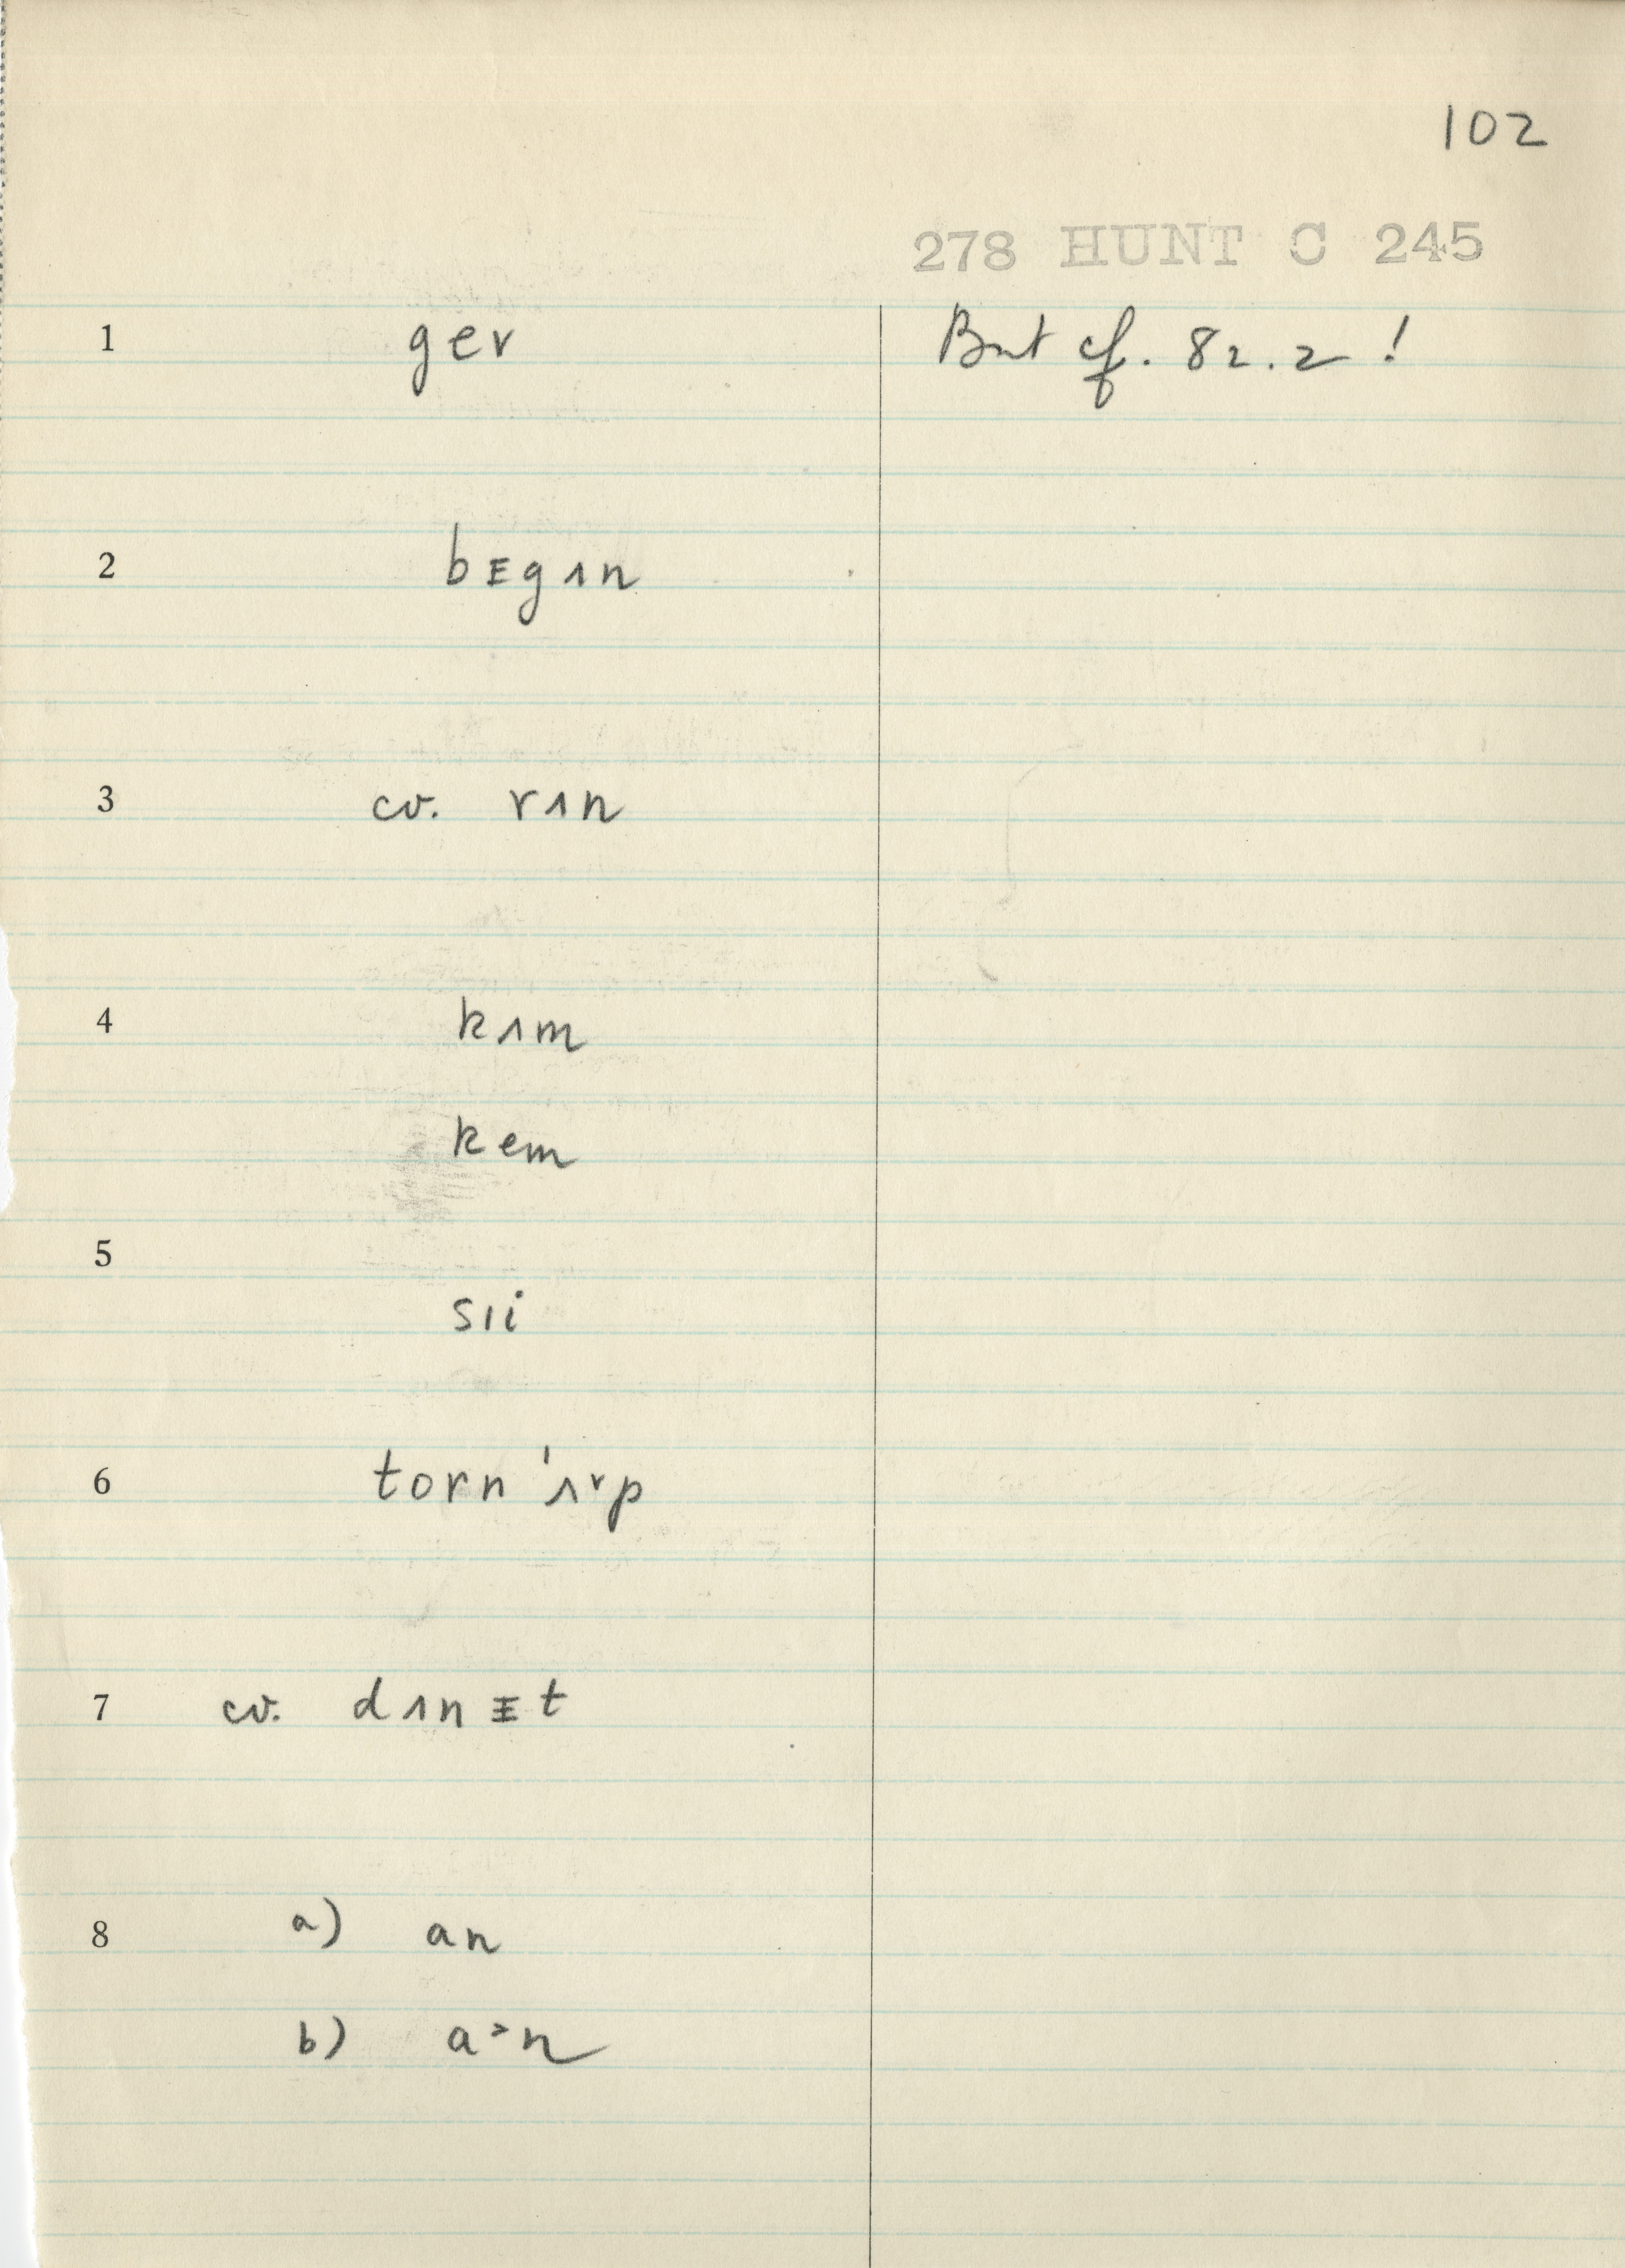 102
278 HUNT C 245
1 gev But cf. 82.2!
2 bᵻgʌn
3 cv. rʌn
4 kʌm
kem
5
sɪi
6 torn 'ʌ˅p
7 cv. dʌnᵻt
8 a) an
b) a˃n